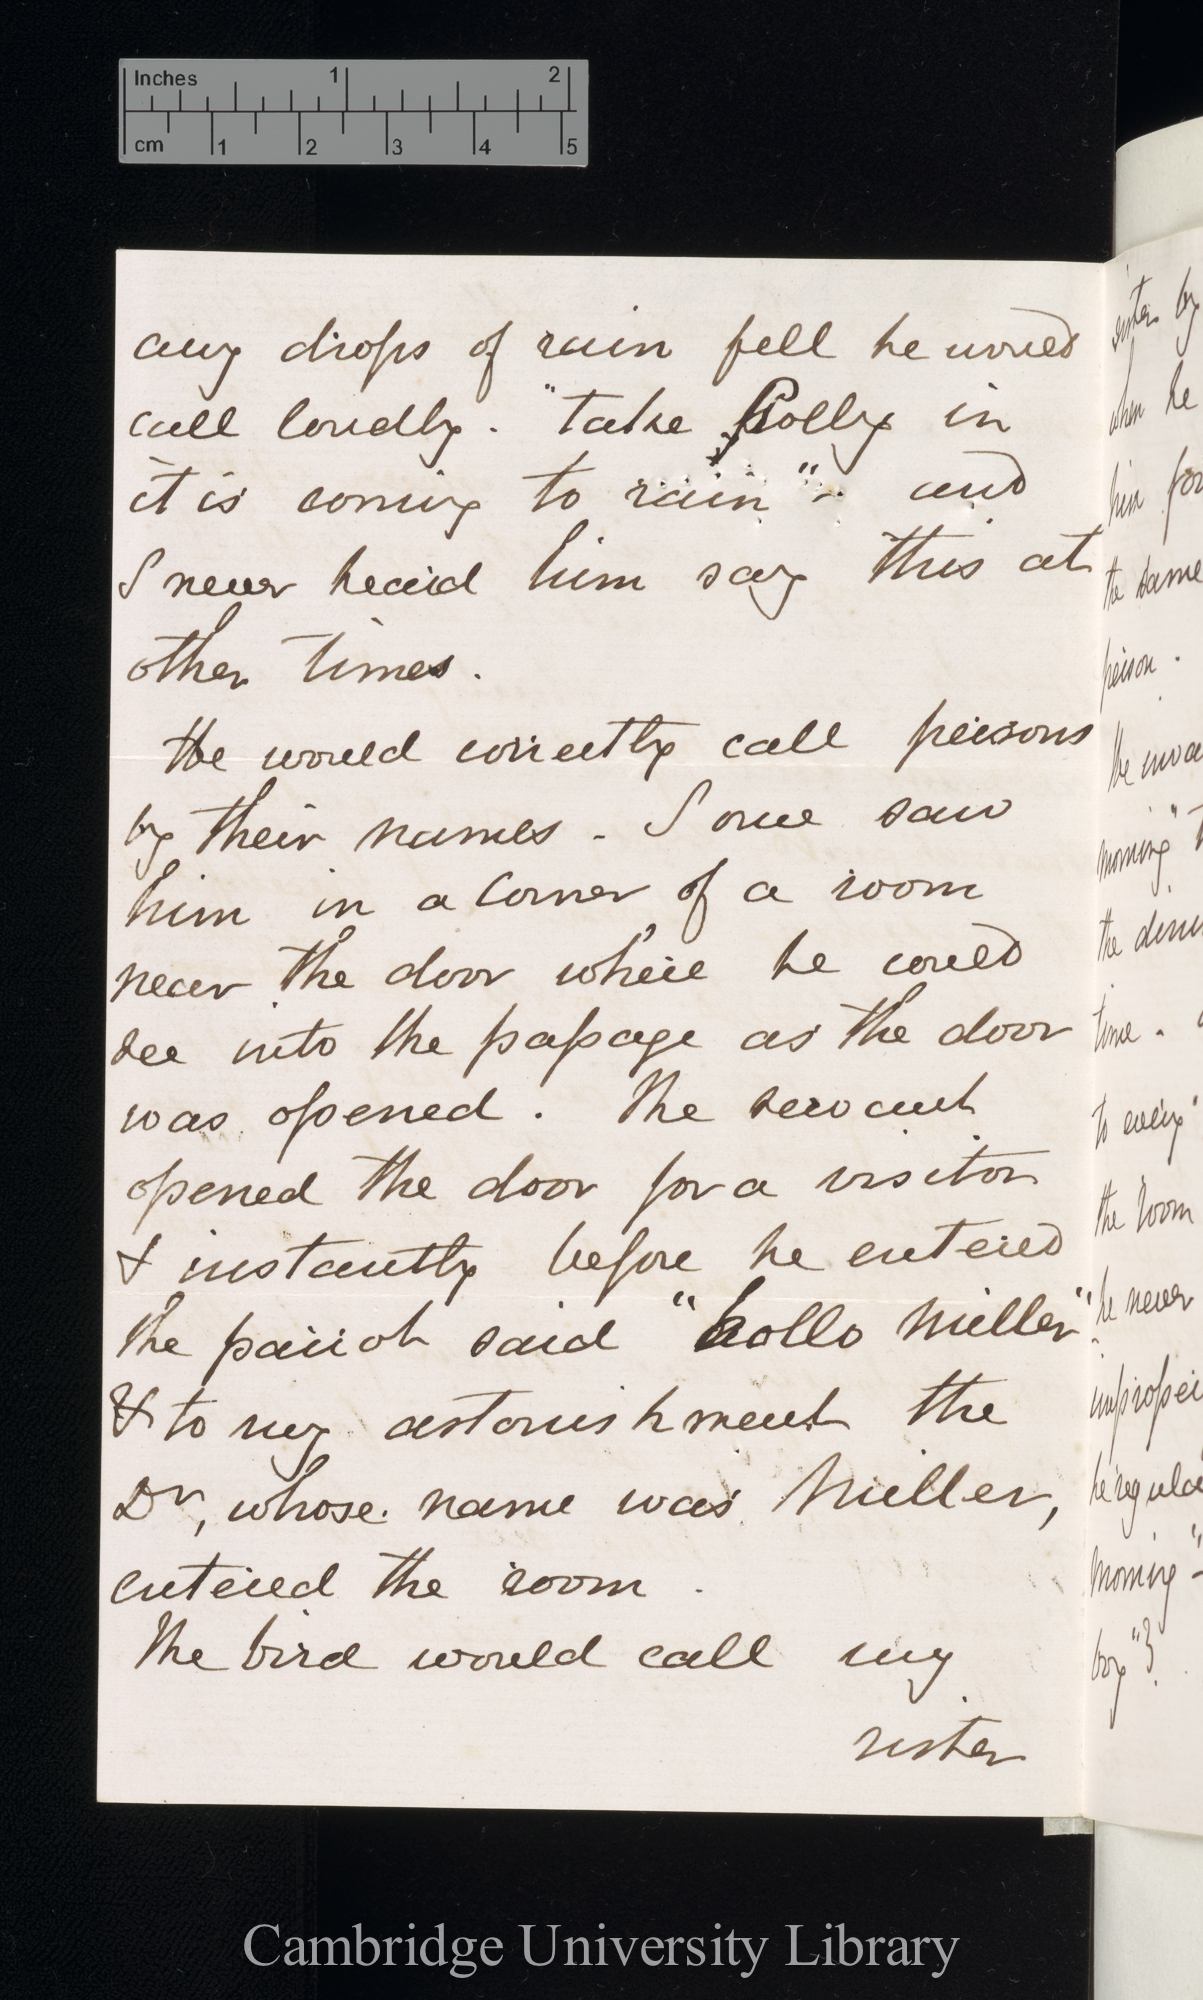 Inches 1 2
cm 1 2 3 4 5
any drops of rain fell he would
call loudly. "take Polly in
it is coming to rain" - and
I never heard him say this at
other times.
He would correctly call persons
by their names. I once saw
him in a corner of a room
near the door where he could
see into the passage as the door
was opened. The servant
opened the door for a visitor
& instantly before he entered
the parrot said "hollo Miller"
& to my astonishment the
Dr, whose name was Miller,
entered the room.
The bird would call my
sister
sister by
when he
him for
the same
person.
He
morning"
the
time.
to every
the room
he never
he
morning" -
boy"}.
Cambridge University Library